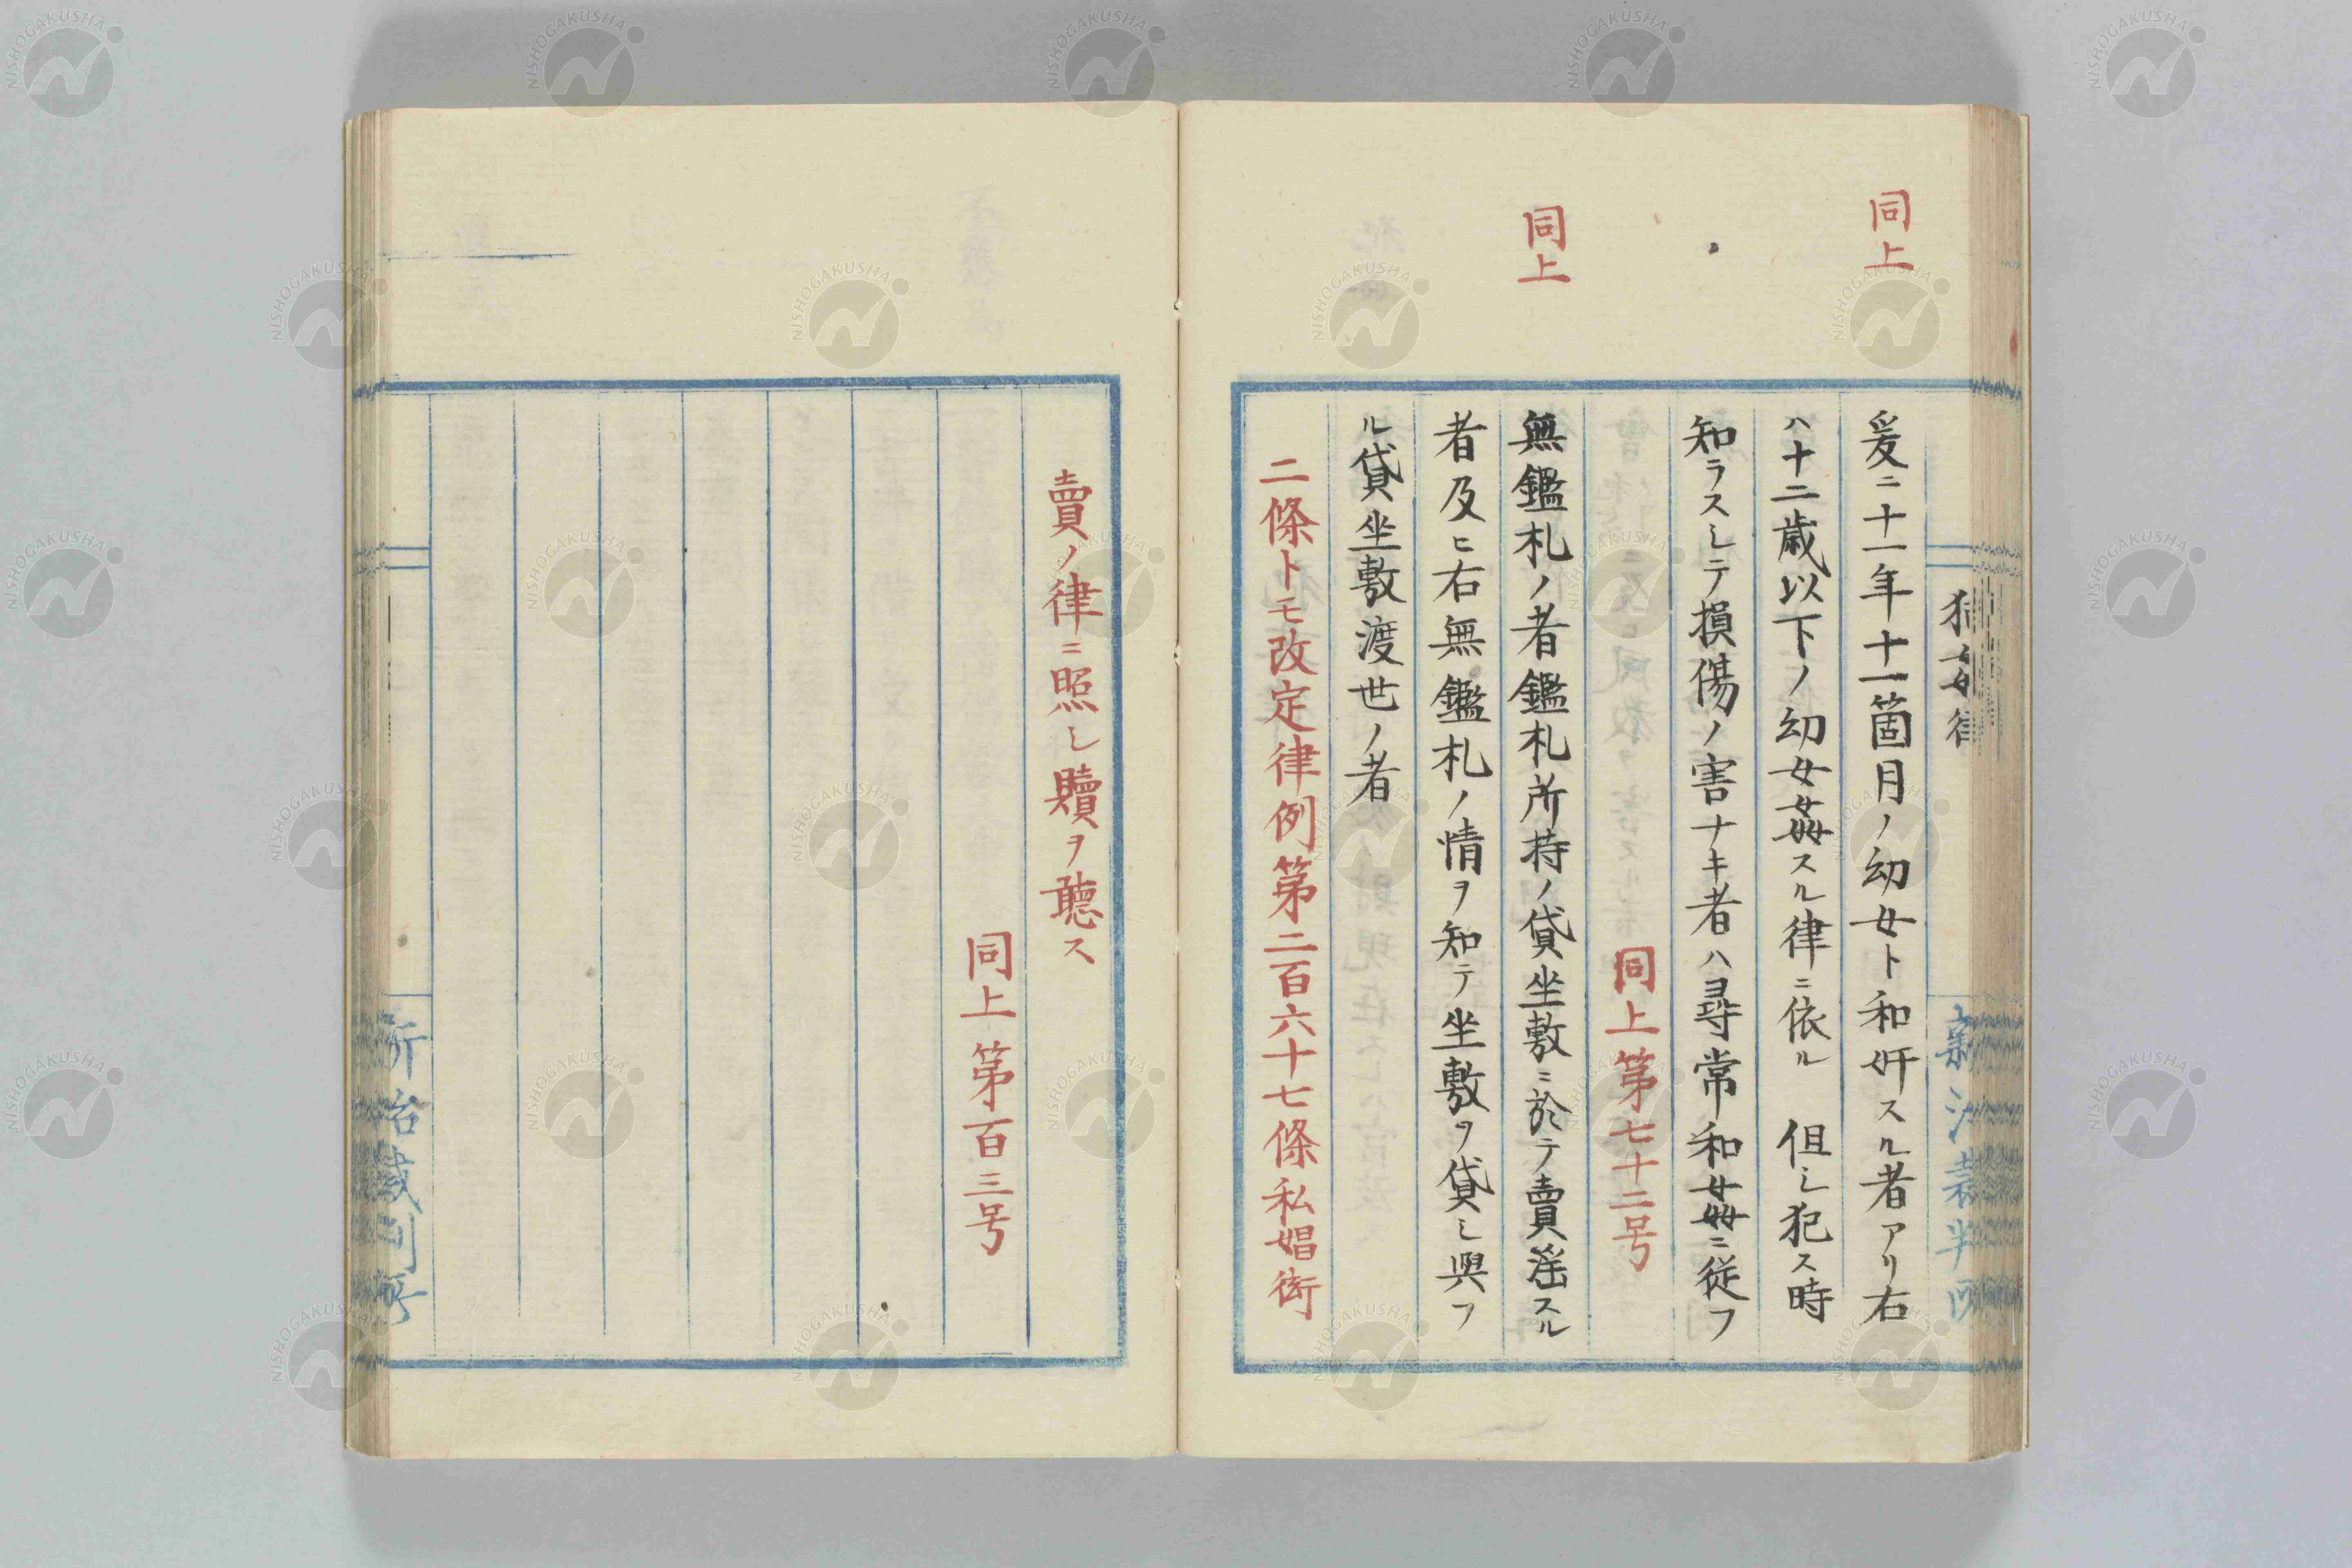 同上
爰ニ十一年十一箇月ノ幼女ト和奸スル者アリ右
ハ十二歳以下ノ幼女姦スル律ニ依ル 但シ犯ス時
知ラスシテ損傷ノ害ナキ者ハ尋常和姦ニ従フ
同上第七十二号
同上
無鑑札ノ者鑑札所持ノ貸坐敷ニ於テ賣淫スル
者及ヒ右無鑑札ノ情ヲ知テ坐敷ヲ貸シ與フ
ル貸坐敷渡世ノ者
二條トモ改定律例第二百六十七條私娼衒
賣ノ律ニ照シ贖ヲ聽ス
同上第百三号
NISHOGAKUSHA